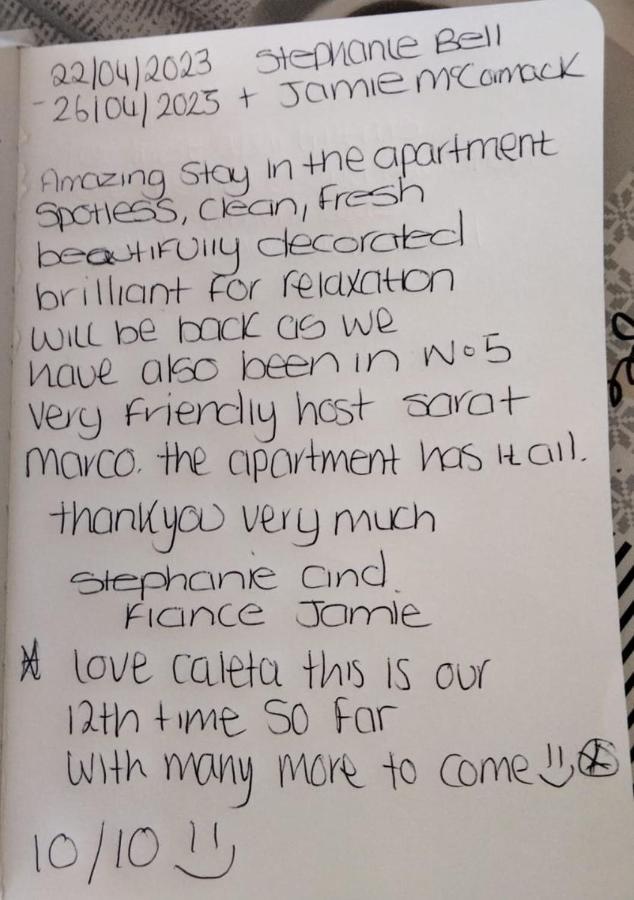 22/04/2023 Stephanie Bell
- 26/04/2023 + Jamie McCormack
Amazing Stay in the apartment
Spotless, Clean, Fresh
beautifully decorated
brilliant for relaxation
will be back as we
have also been in No5
very friendly host sara+
marco. the apartment has it all.
thankyou very much
Stephanie and
Fiance Jamie
love caleta this is our
12th time so far
with many more to come
10/10